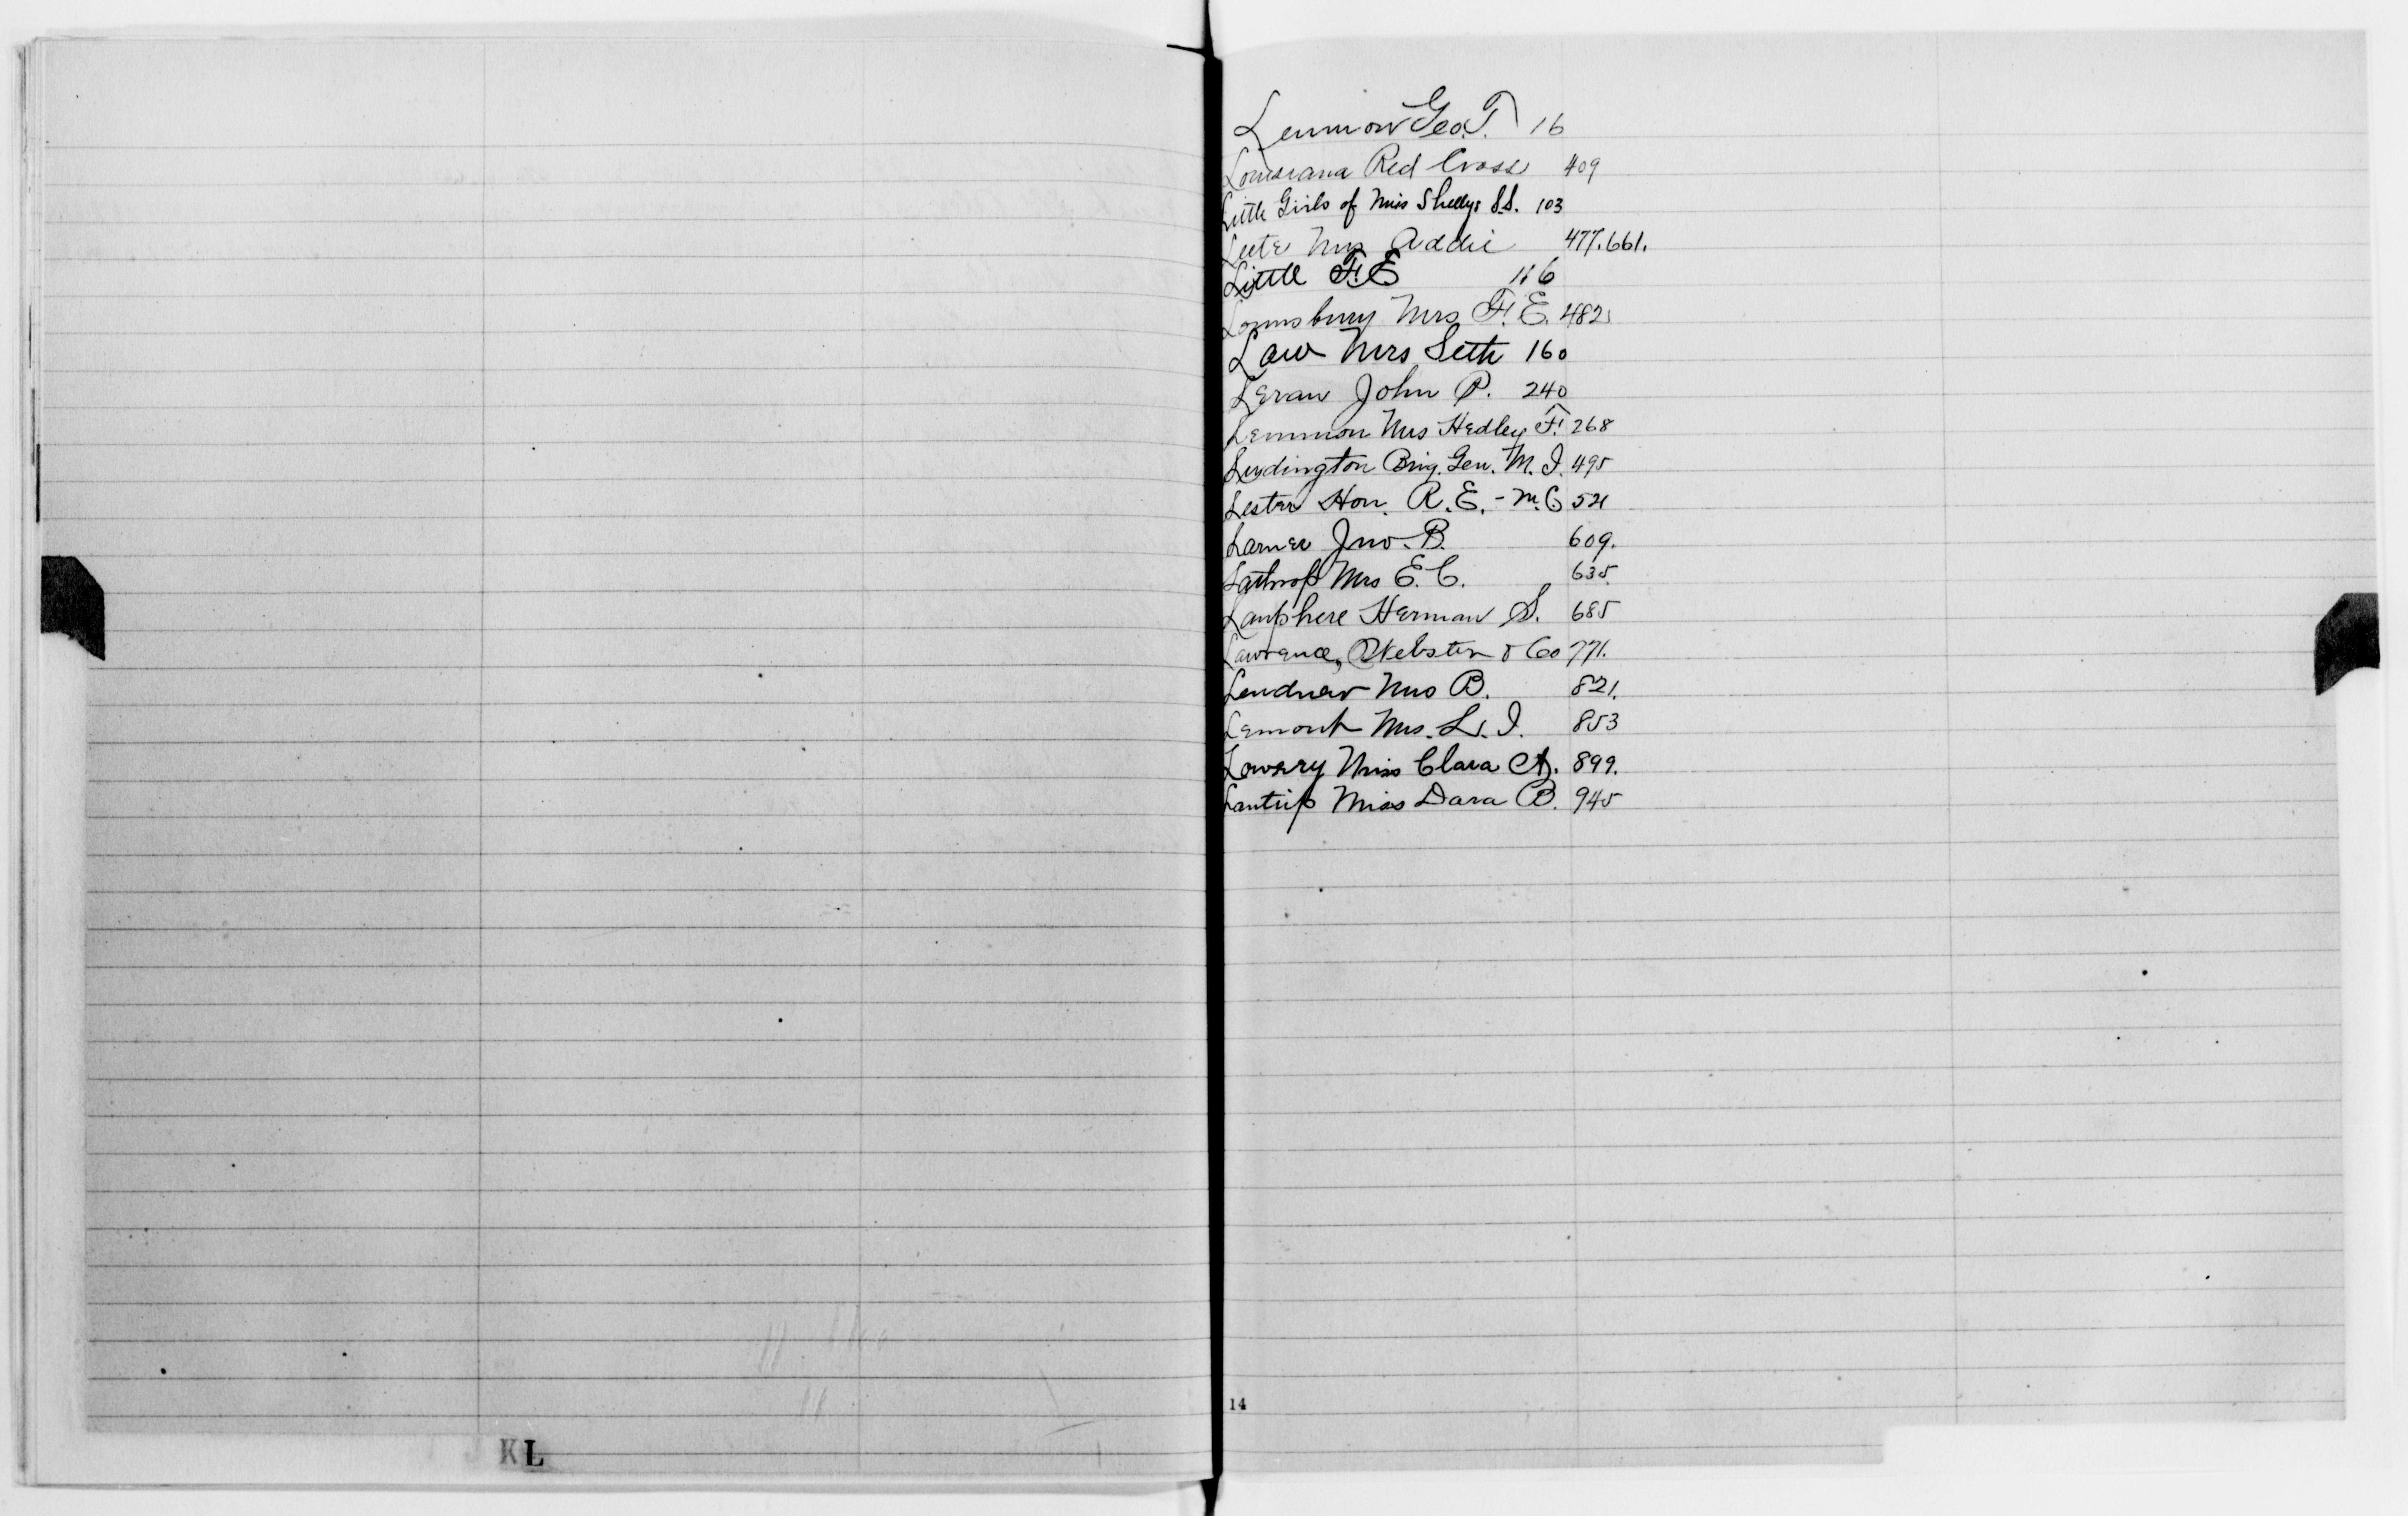 Lemmon Geo. T. 16
Louisiana Red Cross 409
Little Girls of Miss Shellys S.S. 103
Leete Mrs Addie 477. 661.
Little F. E 116
Lounsbury Mrs F. E. 482
Law Mrs Seth 160
Leran John P. 240
Lemmon Mrs Hedley F. 268
Ludington Brig. Gen. M. I. 495
Lester Hon. R. E. - M. C. 521
Larner Jno. B. 609.
Lathrop Mrs E. C. 635
Lanphere Herman S. 685
Lawrence, Webster & Co 771.
Lendner Mrs B. 821.
Lemont Mrs. L. I. 853
Lowery Miss Clara A. 899.
Lantrip Miss Dara B. 945
14
K L